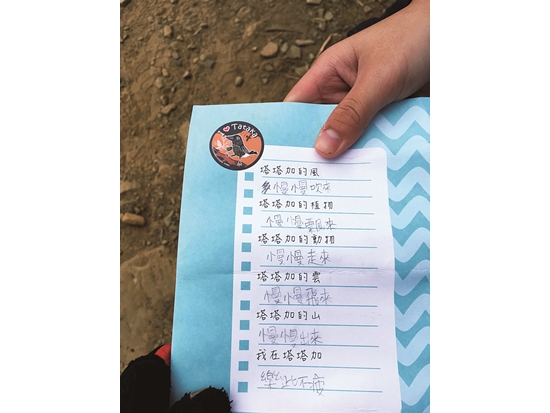 I ♥ Tataka
塔塔加的風
慢慢吹來
塔塔加的植物
慢慢飄來
塔塔加的動物
慢慢走來
塔塔加的雲
慢慢飛來
塔塔加的山
慢慢出來
我在塔塔加
樂此不疲